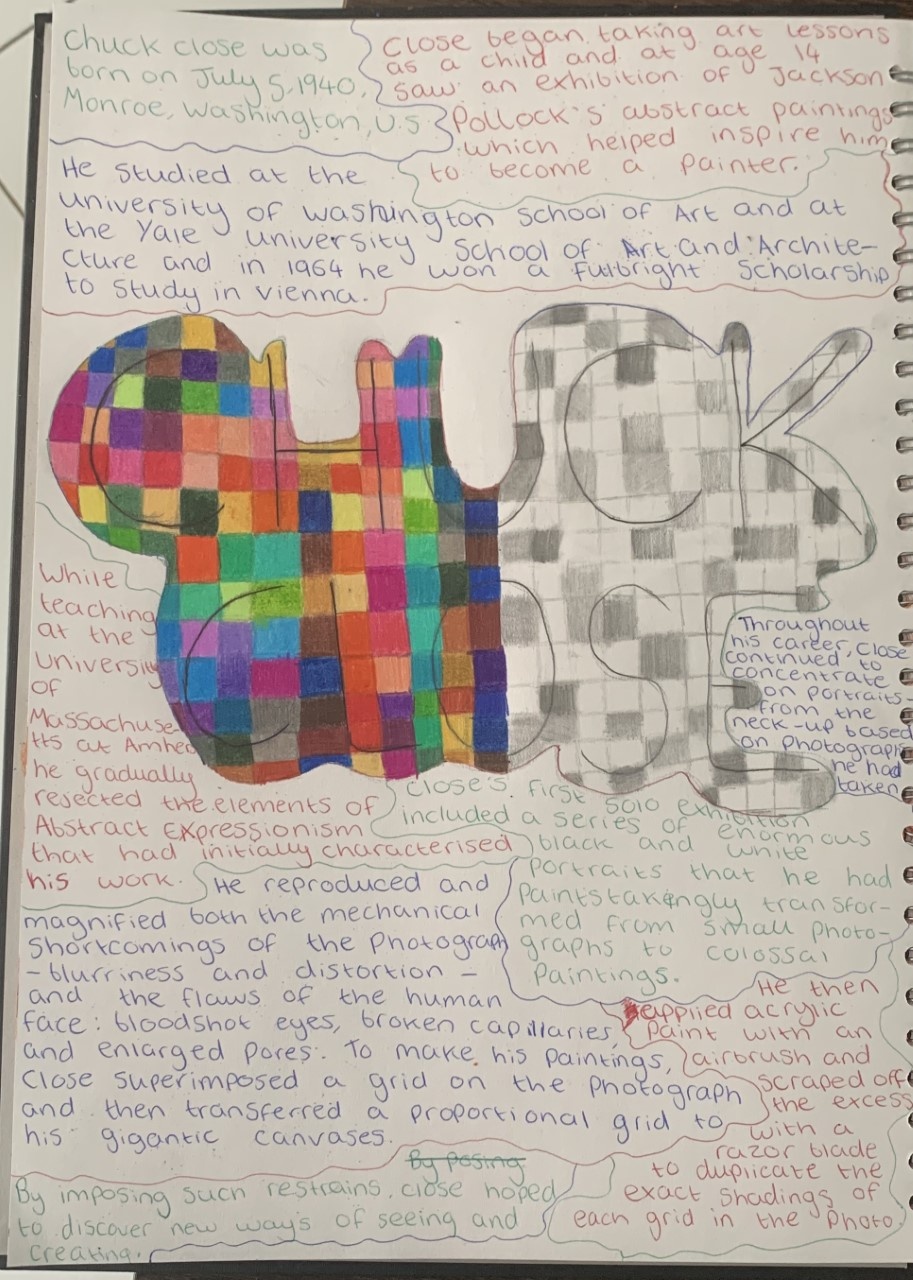 Chuck close was
born on July 5, 1940,
Monroe, Washington, U.S
Close began taking art lessons
as a child and at age 14
saw an exhibition of Jackson
Pollock's abstract paintings
which helped inspire him
to become a painter.
He studied at the
university of washington School of Art and at
the Yale university School of Art and Archite-
cture and in 1964 he won a fulbright Scholarship
to study in vienna.
CHUCK
CLOSE
While
teaching
at the
University
of
Massachuse-
tts at Amher
he gradually
rejected the elements of
Abstract Expressionism
that had initially characterised
his work.
Throughout
his career, Close
continued to
concentrate
on portraits
from the
neck-up based
on photograph
he had
taken
Close's first solo exhibition
included a series of enormous
black and white
portraits that he had
Painstakingly transfor-
med from small photo-
graphs to colossal
Paintings.
He reproduced and
magnified both the mechanical
Shortcomings of the photograph
- blurriness and distortion -
and the flaws of the human
face: bloodshot eyes, broken capillaries,
and enlarged pores. To make his paintings,
Close superimposed a grid on the photograph
and then transferred a proportional grid to
his gigantic canvases.
He then
applied acrylic
paint with an
airbrush and
scraped off
the excess
with a
razor blade
to duplicate the
exact shadings of
each grid in the Photo
By posing
By imposing such restrains, close hoped
to discover new ways of seeing and
creating.